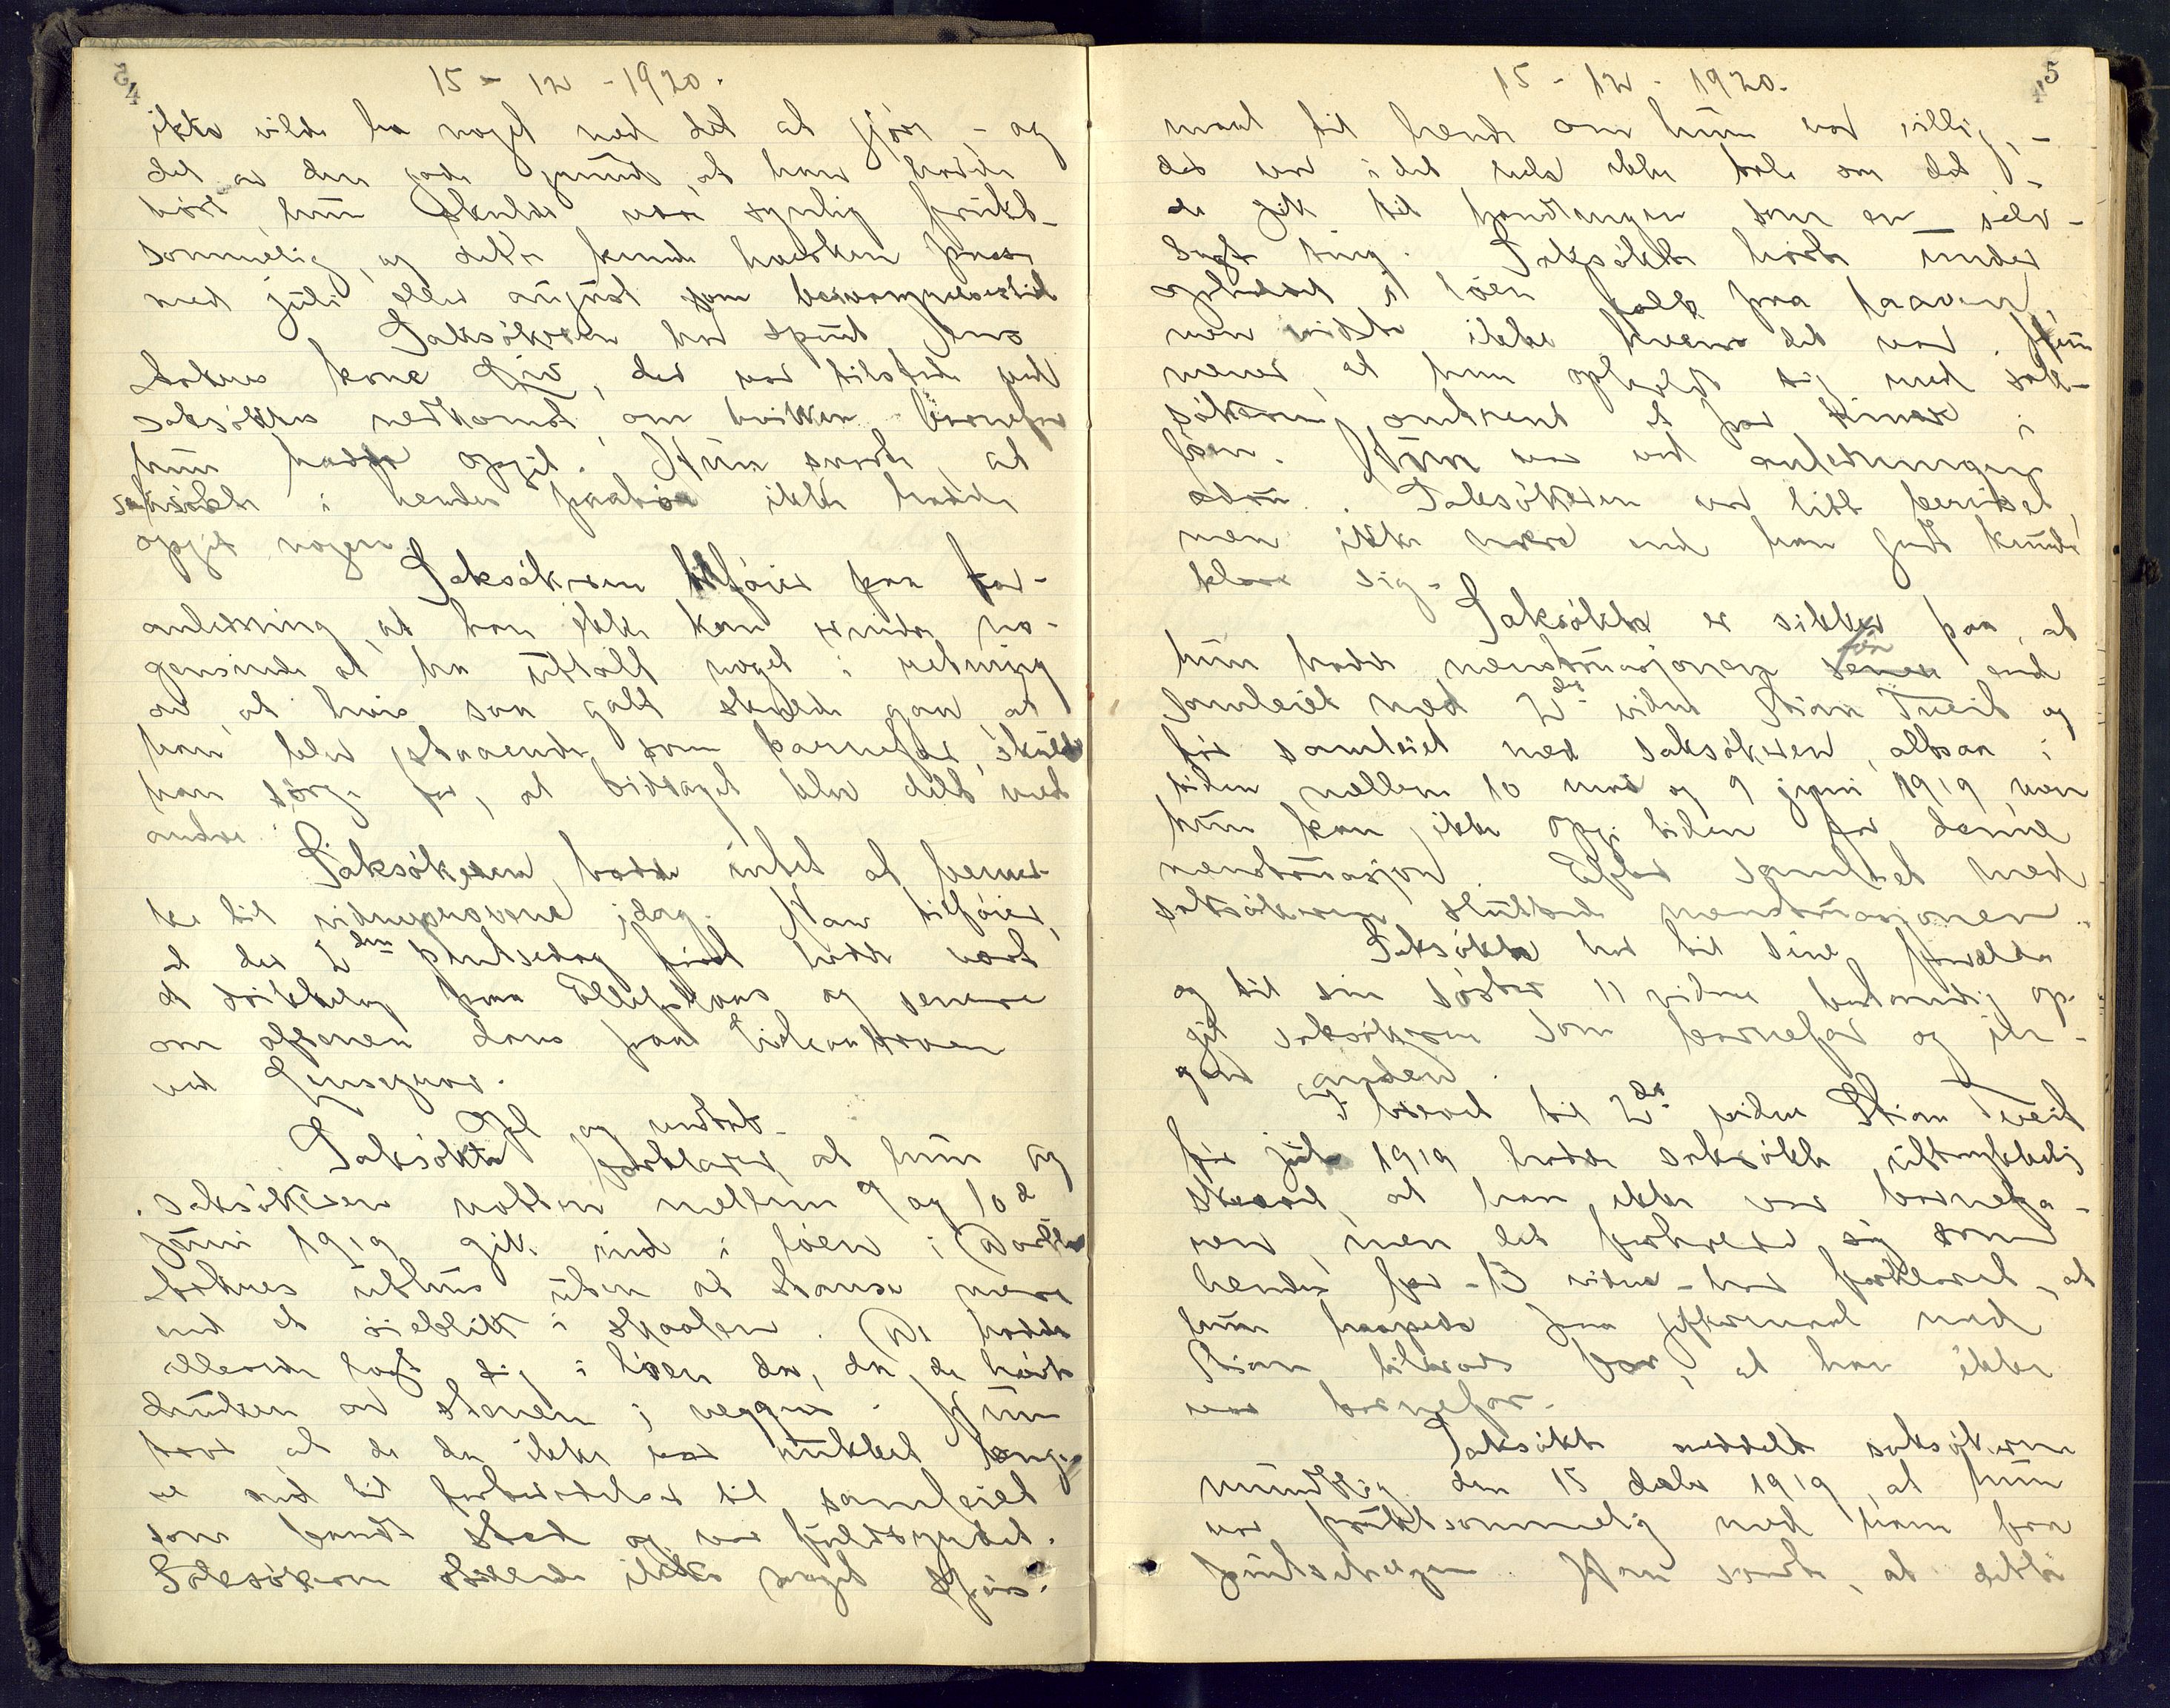 54
15 - 12 - 1920.
ikke vilde ha noget med det at gjöre, - og
det av den gode grund, at han hadde
hört hun skulde være synlig frukt-
sommelig, og dette kunde hverken passe
med juli eller august som besvangrelsestid
Saksökeren har spurt Jens
kone Liv, der var tilstede ved
saksöktes nedkomst, om hvilken barnefar
hun hadde opgit. Hun svarte, at
saksökte i hendes paahör ikke hadde
opgit nogen.
Saksökeren tilföier paa for-
anledning, at han ikke kan erindre no-
gensinde at ha uttalt noget i retning
av, at hvis saa galt skulde gaa, at
han blev staaende som barnefar, skulde
han sörge for, at bidraget blev delt med
andre.
Saksökeren hadde intet at bemer-
ke til vidneprovene idag. Han tilföier,
at der 2den pintsedag först hadde vært
et drikkelag paa og senere
om aftenen dans paa
ved
Opl. og vedtat.
Saksökte forklarer at hun og
saksökeren natten mellem 9 og 10de
juni 1919 gik ind i löen i
uthus uten at stanse mere
end et öieblikk i skaalen. De hadde
allerede lagt sig i löen da, da de hörte
dunken av stenen i væggen. Hun
tror at de da ikke var rukket længe-
re end til forberedelser til samleiet
som fandt sted og var fuldbyrdet.
Saksökeren stillede ikke noget spörs-
55
15 - 12 - 1920.
maal til hende om hun var villig, -
det var i det hele ikke tale om det -
de gik til handlingen som en selv-
sagt ting. Saksökte hörte under
opholdet i löen folk paa laaven,
men visste ikke hvem det var. Hun
mener, at hun opholdt sig med sak-
sökeren omtrent et par timer i
löen. Hun var ved anledningen
ædru. Saksökeren var litt beruset,
men ikke mere end han godt kunde
klare sig.
Saksökte er sikker paa, at
hun hadde menstruasjonen för end
samleiet med 2det vidne Stian Tveit og
för samleiet med saksökeren, altsaa i
tiden mellem 10 mai og 9 juni 1919 men
hun kan ikke opgi tiden for denne
menstruasjon. Efter samleiet med
saksökeren sluttede menstruasjonen.
Saksökte har til sine forældre
og til sin söster 11 vidne bestandig op-
git saksökeren som barnefar og in-
gen anden.
I brevet til 2det vidne Stian Tveit
för jul 1919 hadde saksökte uttrykkelig
skrevet, at han ikke var barnefa-
ren, men det forholder sig som
hendes far - 13 vidne - har forklaret, at
hun haapede paa gifermaal med
Stian tiltrods for, at han ikke
var barnefar.
Saksökte meddelte saksökeren
mundtlig den 15 dcbr 1919, at hun
var fruktsommelig med ham fra
pintsehelgen. Han svarte, at dette